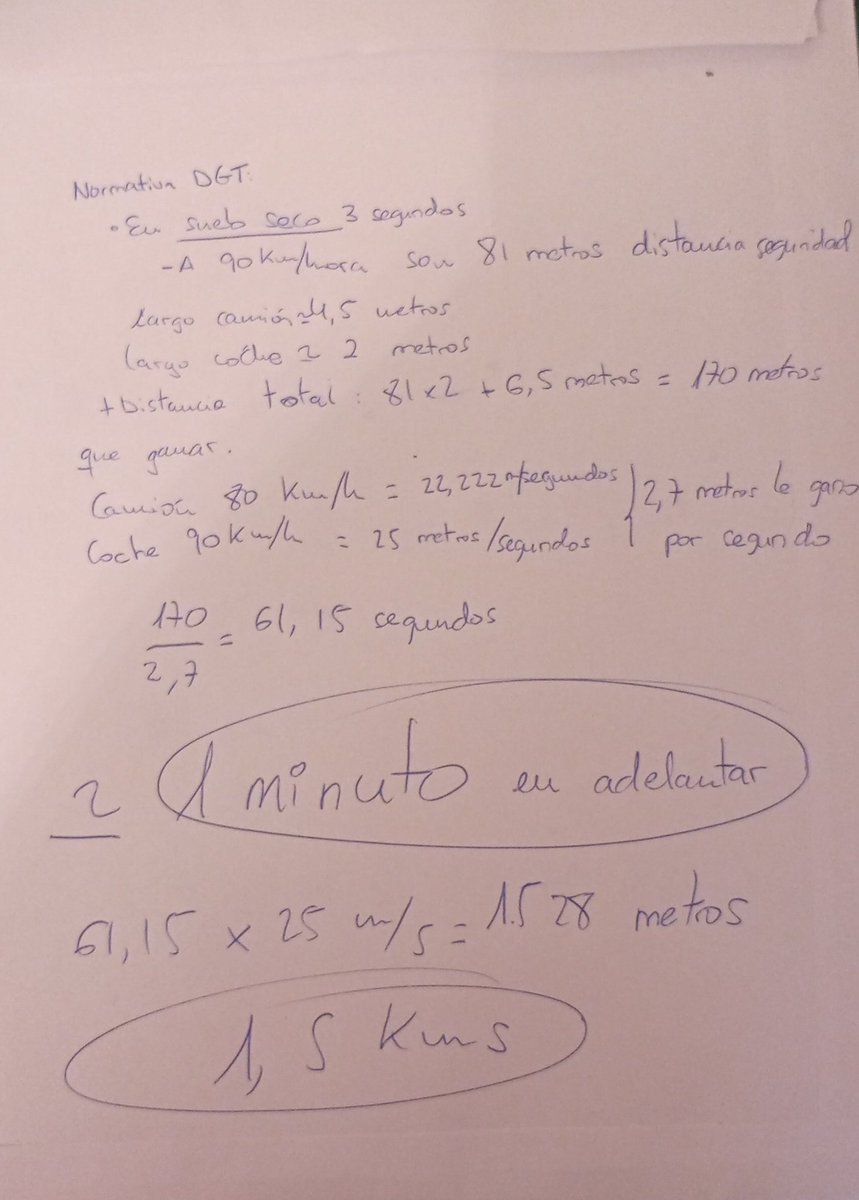 Normativa DGT:
• En suelo seco 3 segundos
- A 90 Km/hora son 81 metros distancia seguridad
largo camión ≃ 4,5 metros
largo coche ≃ 2 metros
+ Distancia total : 81 x 2 + 6,5 metros = 170 metros
que ganar.
Camión 80 Km/h = 22,222 m/segundos
Coche 90 Km/h = 25 metros/segundos
2,7 metros le gano
por segundo
170 / 2,7 = 61,15 segundos
≃ 1 minuto en adelantar
61,15 x 25 m/s = 1.528 metros
1,5 Kms